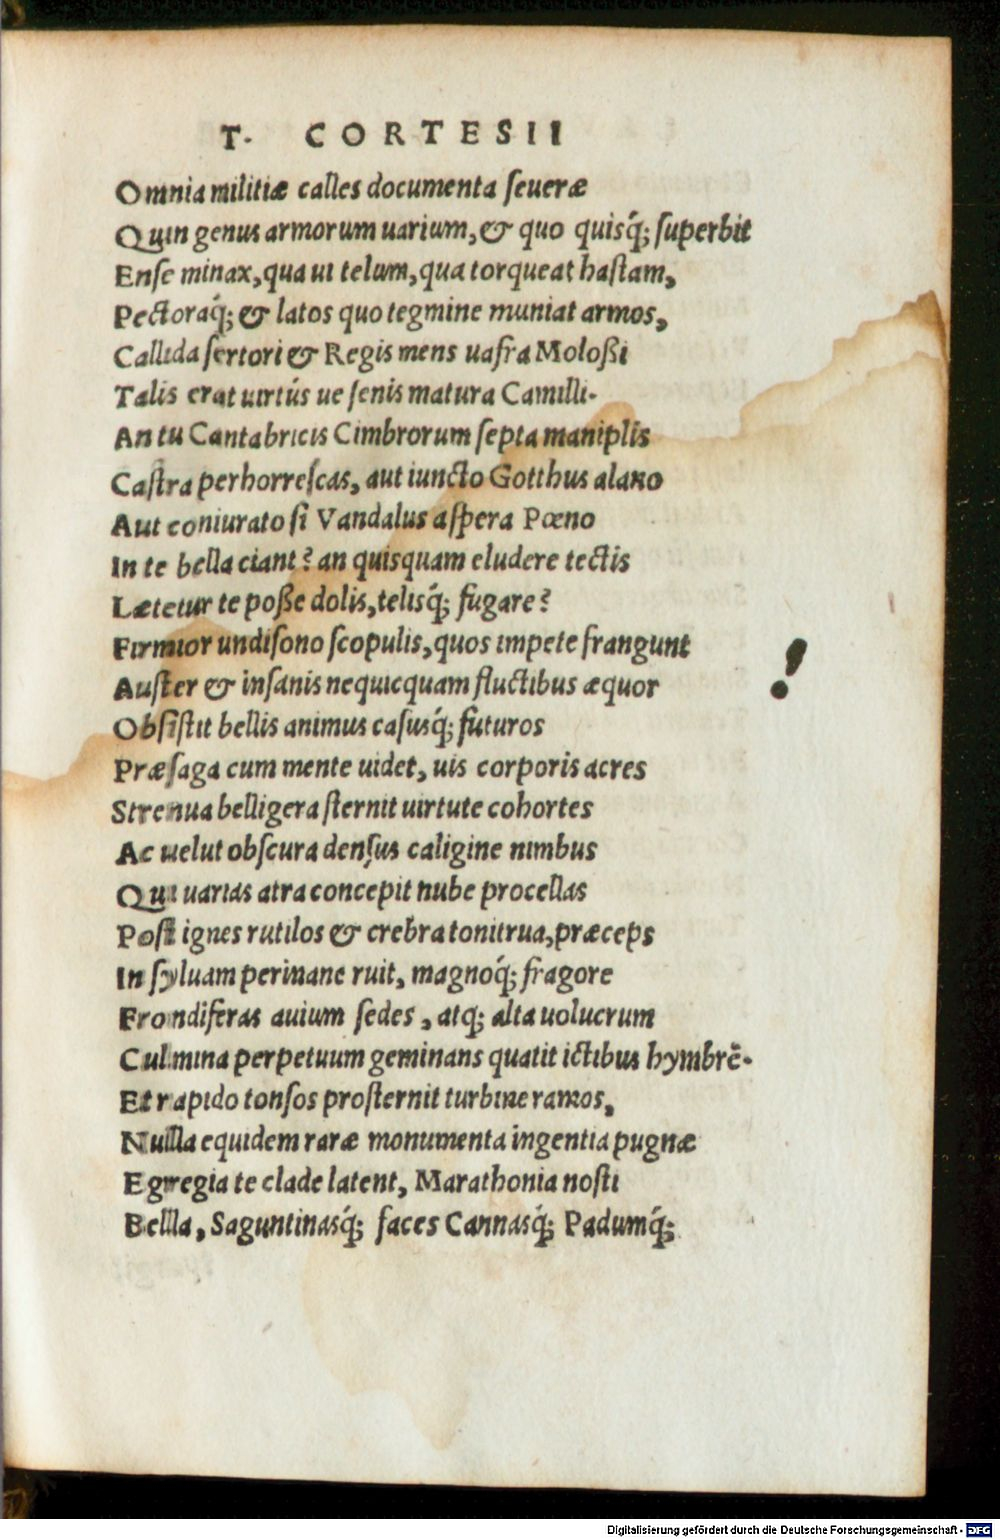 T. CORTESII
Omnia militiæ calles documenta ſeueræ
Quin genus armorum uarium, & quo quisq́; ſuperbit
Enſe minax, qua ui telum, qua torqueat haſtam,
Pectoraq́; & latos quo tegmine muniat armos,
Callida ſertori & Regis mens uafra Moloßi
Talis erat uirtús ue ſenis matura Camilli.
An tu Cantabricis Cimbrorum ſepta maniplis
Caſtra perhorreſcas, aut iuncto Gotthus alano
Aut coniurato ſi Vandalus aſpera Pœno
In te bella ciant? an quisquam eludere tectis
Lætetur te poße dolis, telisq́; fugare?
Firmior undiſono ſcopulis, quos impete frangunt
Auſter & inſanis nequicquam fluctibus æquor
Obſiſtit bellis animus caſusq́; futuros
Præſaga cum mente uidet, uis corporis acres
Strenua belligera ſternit uirtute cohortes
Ac uelut obſcura denſus caligine nimbus
Qui uarias atra concepit nube procellas
Poſt ignes rutilos & crebra tonitrua, præceps
In ſyluam per inane ruit, magnoq́; fragore
Frondiferas auium ſedes, atq; alta uolucrum
Culmina perpetuum geminans quatit ictibus hymbrē.
Et rapido tonſos proſternit turbine ramos,
Nulla equidem raræ monumenta ingentia pugnæ
Egregia te clade latent, Marathonia noſti
Bella, Saguntinasq́; faces Cannasq́; Padumq́;
Digitalisierung gefördert durch die Deutsche Forschungsgemeinschaft - DFG